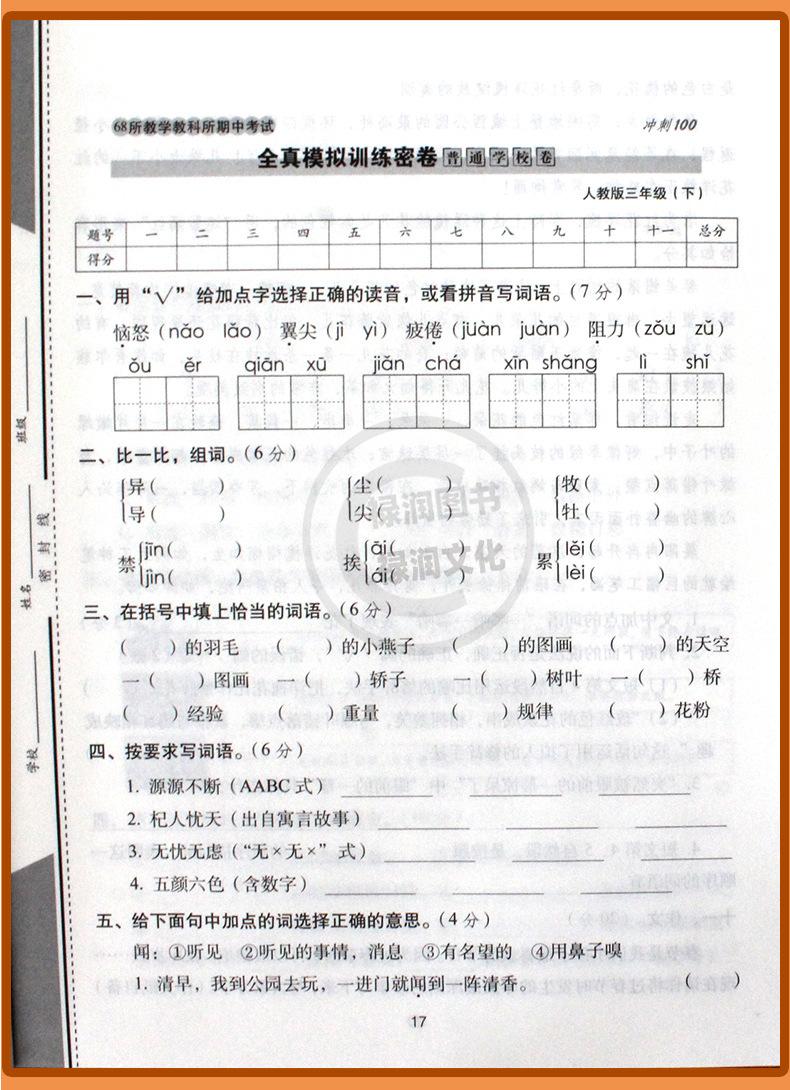 68所教学教科所期中考试
冲刺100
全真模拟训练密卷 普通学校卷
人教版三年级（下）
题号 一 二 三 四 五 六 七 八 九 十 十一 总分
得分
一、用“√”给加点字选择正确的读音，或看拼音写词语。（7分）
恼怒（nǎo lǎo） 翼尖（jì yì） 疲倦（jüàn juàn） 阻力（zǒu zǔ）
ǒu ěr qiān xū jiǎn chá xīn shǎng lì shǐ
二、比一比，组词。（6分）
异（ ） 尘（ ） 牧（ ）
导（ ） 尖（ ） 牡（ ）
禁 jīn（ ） 挨 āi（ ） 累 lěi（ ）
jìn（ ） ái（ ） lèi（ ）
三、在括号中填上恰当的词语。（6分）
（ ）的羽毛 （ ）的小燕子 （ ）的图画 （ ）的天空
一（ ）图画 一（ ）轿子 一（ ）树叶 一（ ）桥
（ ）经验 （ ）重量 （ ）规律 （ ）花粉
四、按要求写词语。（6分）
1. 源源不断（AABC式）
2. 杞人忧天（出自寓言故事）
3. 无忧无虑（“无×无×”式）
4. 五颜六色（含数字）
五、给下面句中加点的词选择正确的意思。（4分）
闻：①听见 ②听见的事情，消息 ③有名望的 ④用鼻子嗅
1. 清早，我到公园去玩，一进门就闻到一阵清香。 （ ）
17
班级
姓名
学校
密封线
禄润图书
禄润文化